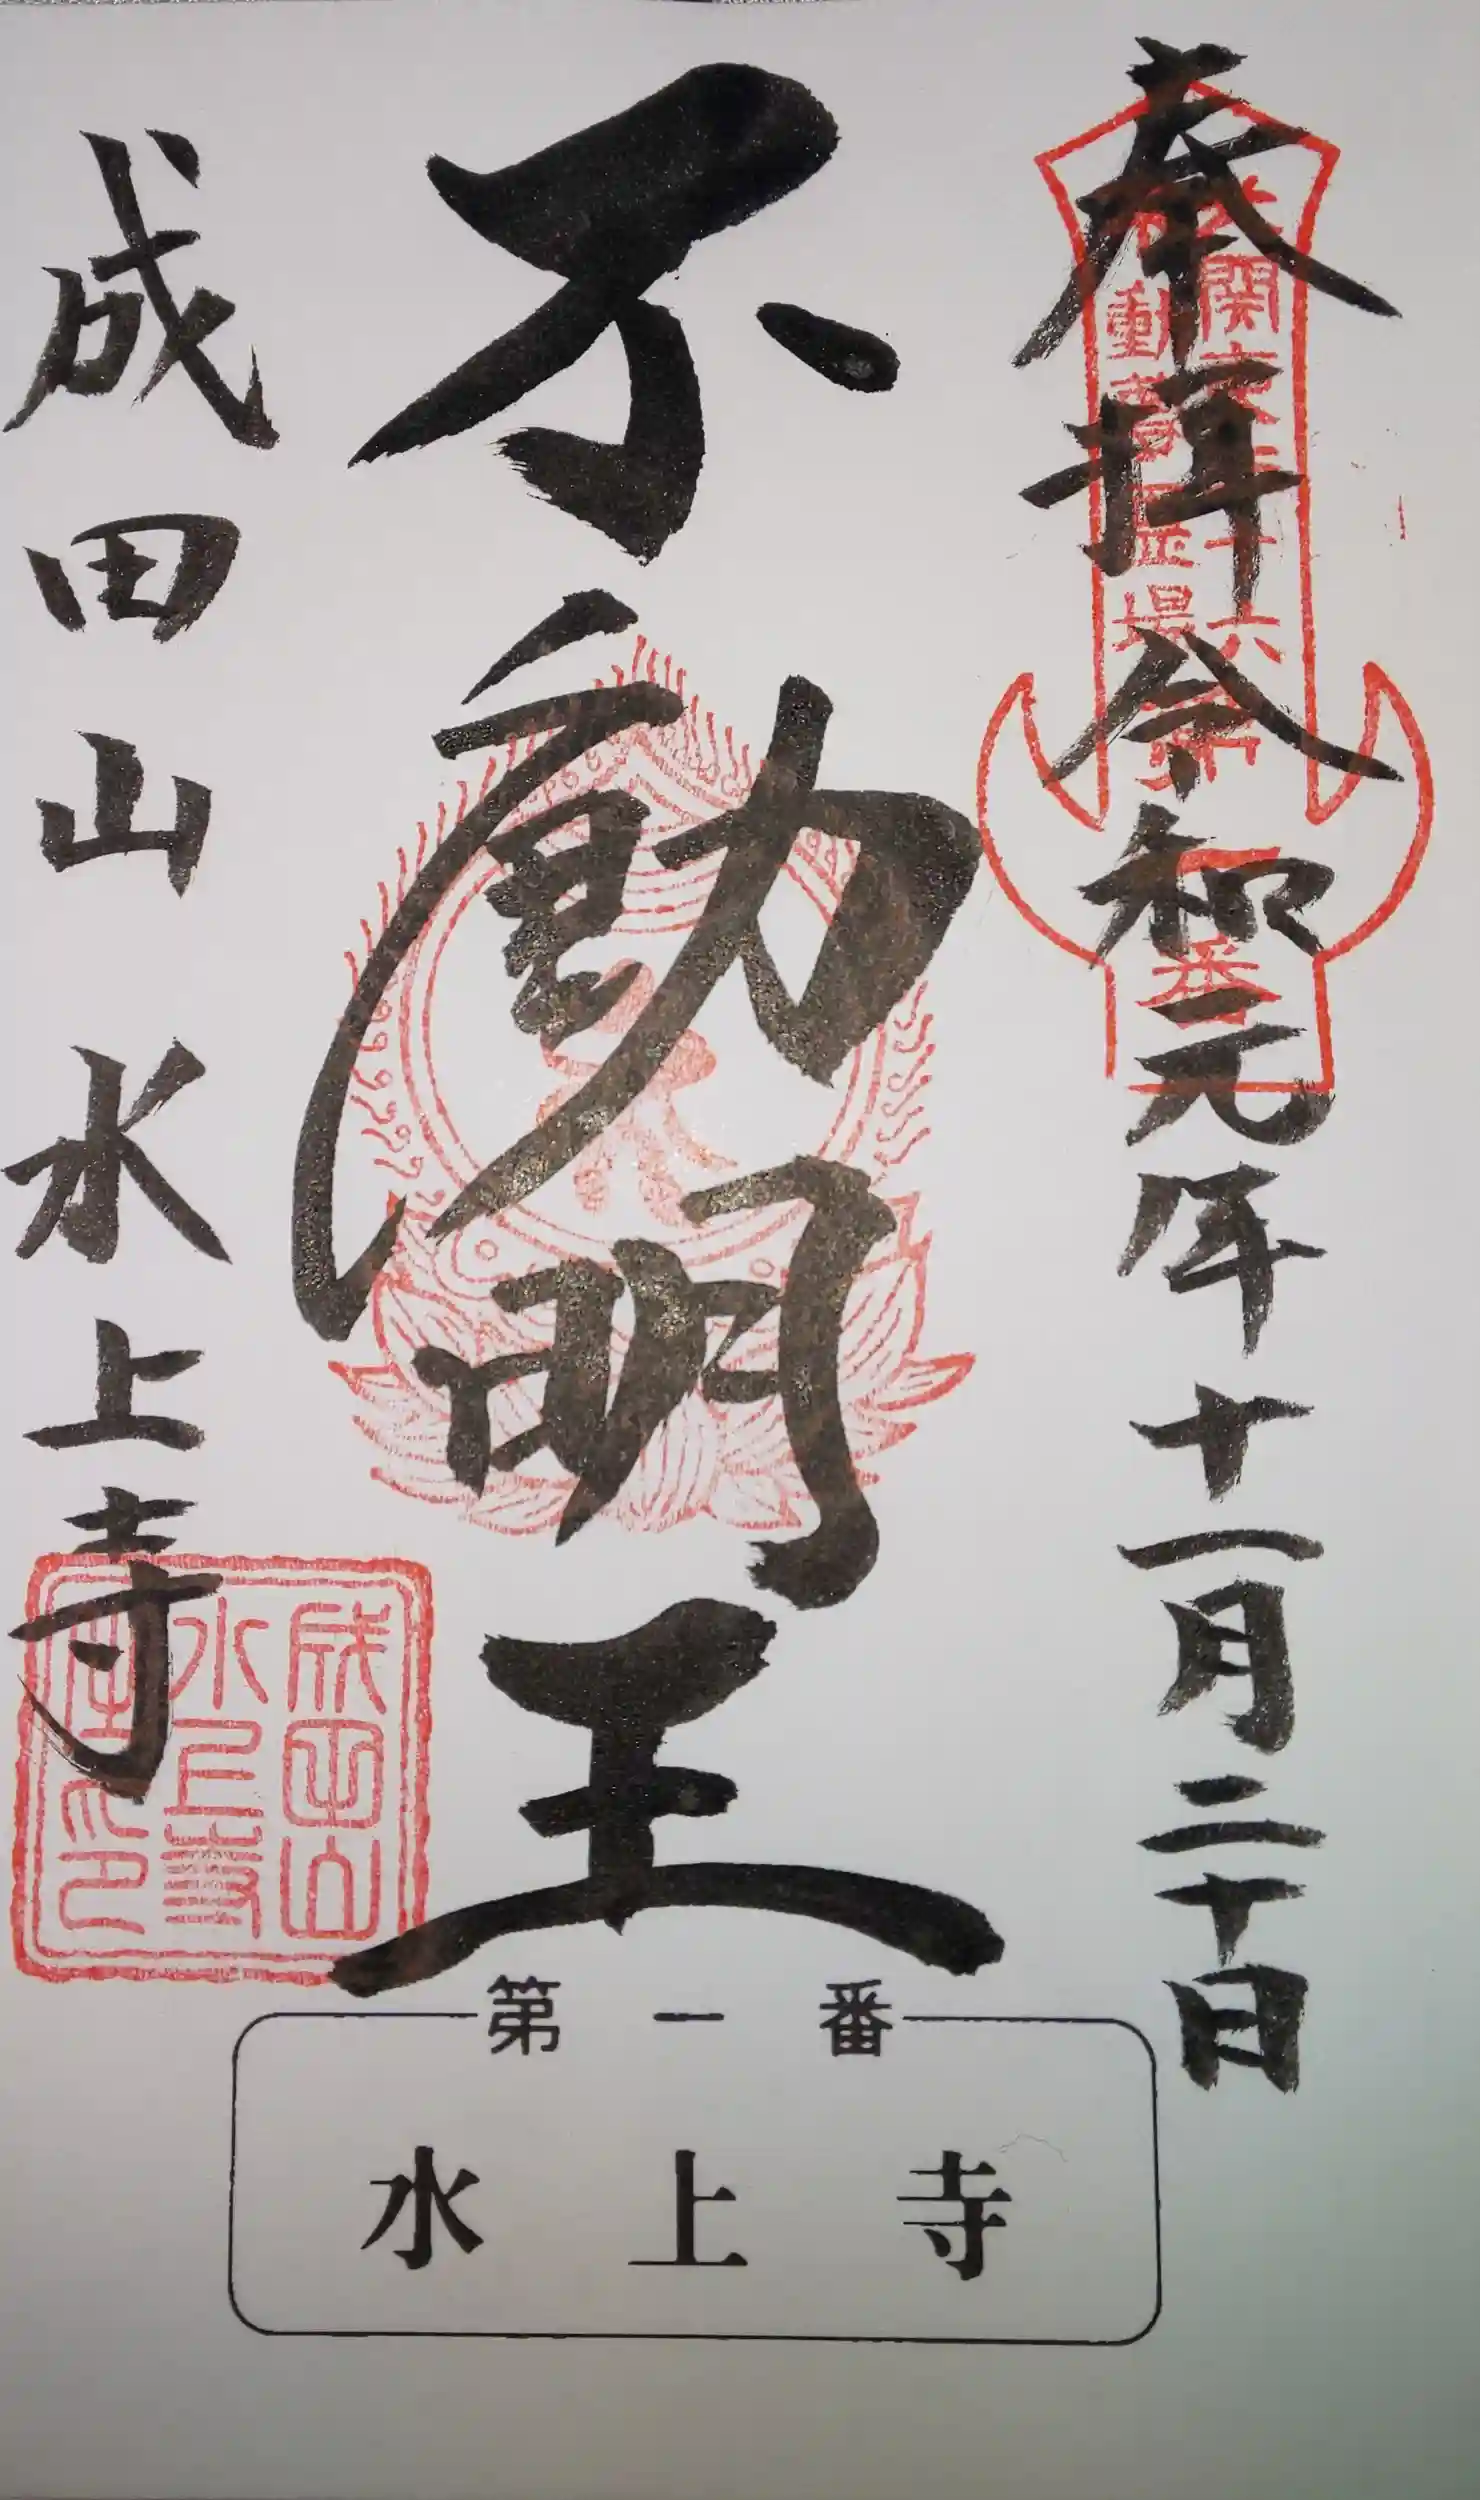 奉拝 令和元年十一月二十日
北関東三十六
不動尊霊場
第一番
不動明王
成田山水上寺
成田山
水上寺
第一番
水上寺